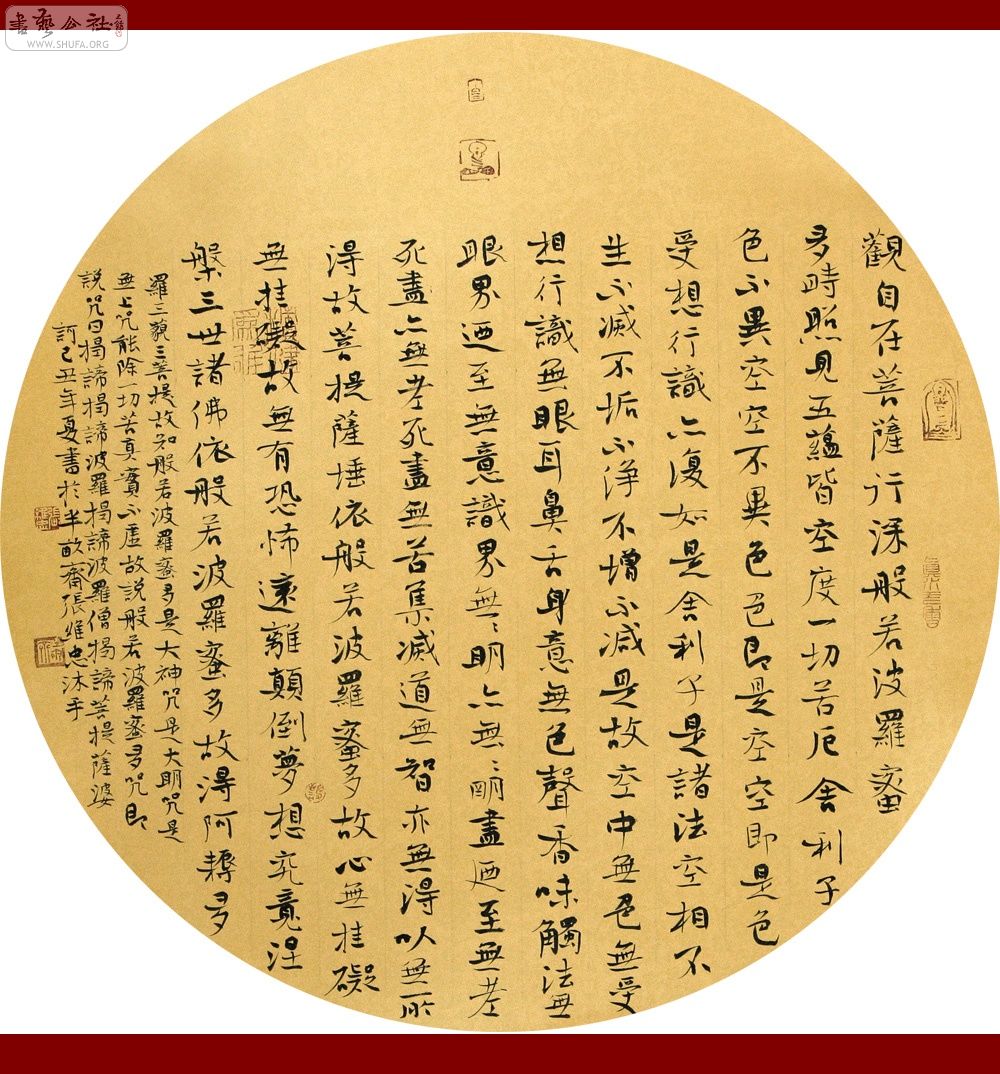 書藝公社
WWW.SHUFA.ORG
觀自在菩薩行深般若波羅蜜
多時照見五蘊皆空度一切苦厄舍利子
色不異空空不異色色即是空空即是色
受想行識亦復如是舍利子是諸法空相不
生不滅不垢不淨不增不減是故空中無色無受
想行識無眼耳鼻舌身意無色聲香味觸法無
眼界迺至無意識界無〻明亦無〻明盡迺至無老
死盡亦無老死盡無苦集滅道無智亦無得以無所
得故菩提薩埵依般若波羅蜜多故心無挂礙
無挂礙故無有恐怖遠離顛倒夢想究竟涅
槃三世諸佛依般若波羅蜜多故得阿耨多
羅三藐三菩提故知般若波羅蜜多是大神咒是大明咒是
無上咒能除一切苦真實不虛故說般若波羅蜜多咒即
說咒曰揭諦揭諦波羅揭諦波羅僧揭諦菩提薩婆
訶己丑年夏書於半畝齋張維忠沐手